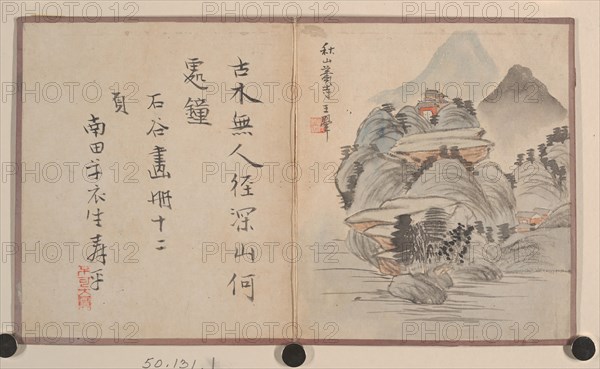 秋山蕭寺王翬
古木無人径深山何
處鐘
石谷畫冊十二
頁
南田草衣生壽平
50.131.1
PHOTO12